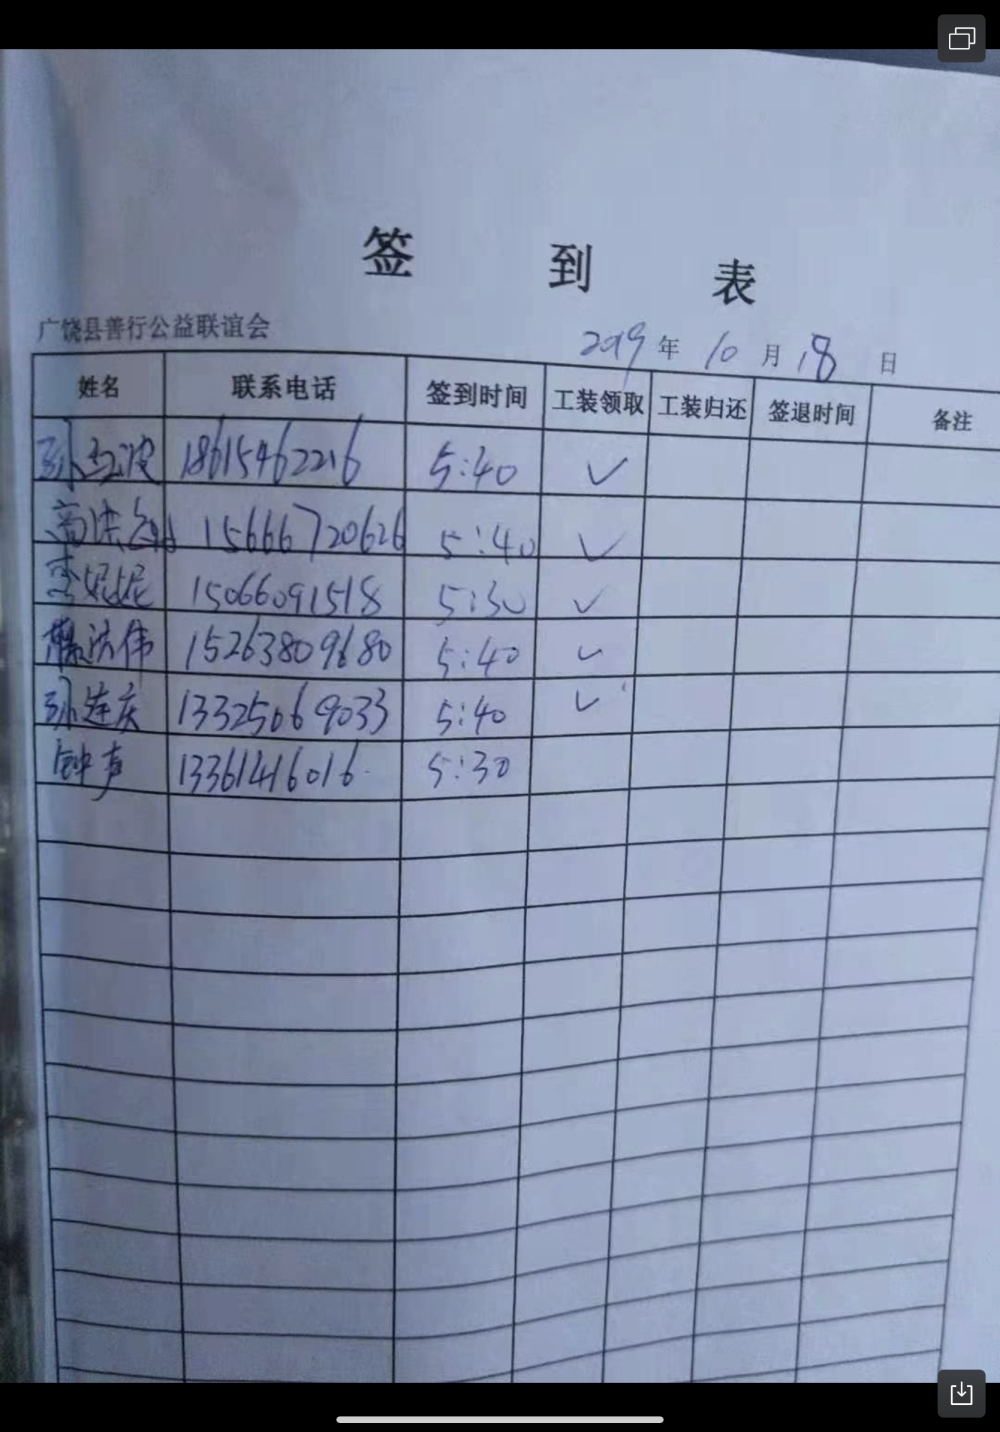 签 到 表
广饶县善行公益联谊会 2019 年 10 月 18 日
姓名 联系电话 签到时间 工装领取 工装归还 签退时间 备注
孙红波 18615462216 5:40 ✓
高洪 15666720626 5:40 ✓
李妮妮 15066091518 5:30 ✓
伟 15263809680 5:40 ✓
孙连庆 13325069033 5:40 ✓
钟声 13361416016 5:30